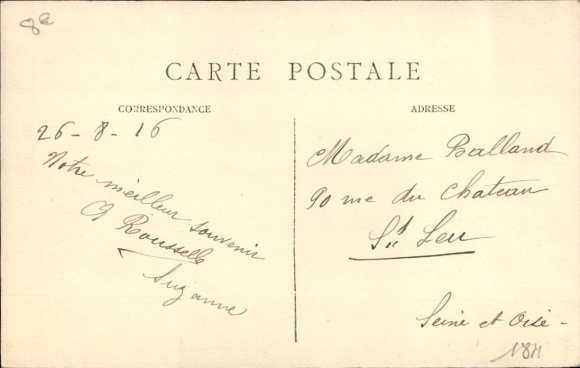 8e
CARTE POSTALE
CORRESPONDANCE
26-8-16
Notre meilleur souvenir
Roussell
Suzanne
ADRESSE
Madame Balland
90 rue du Chateau
St Leu
Seine et Oise -